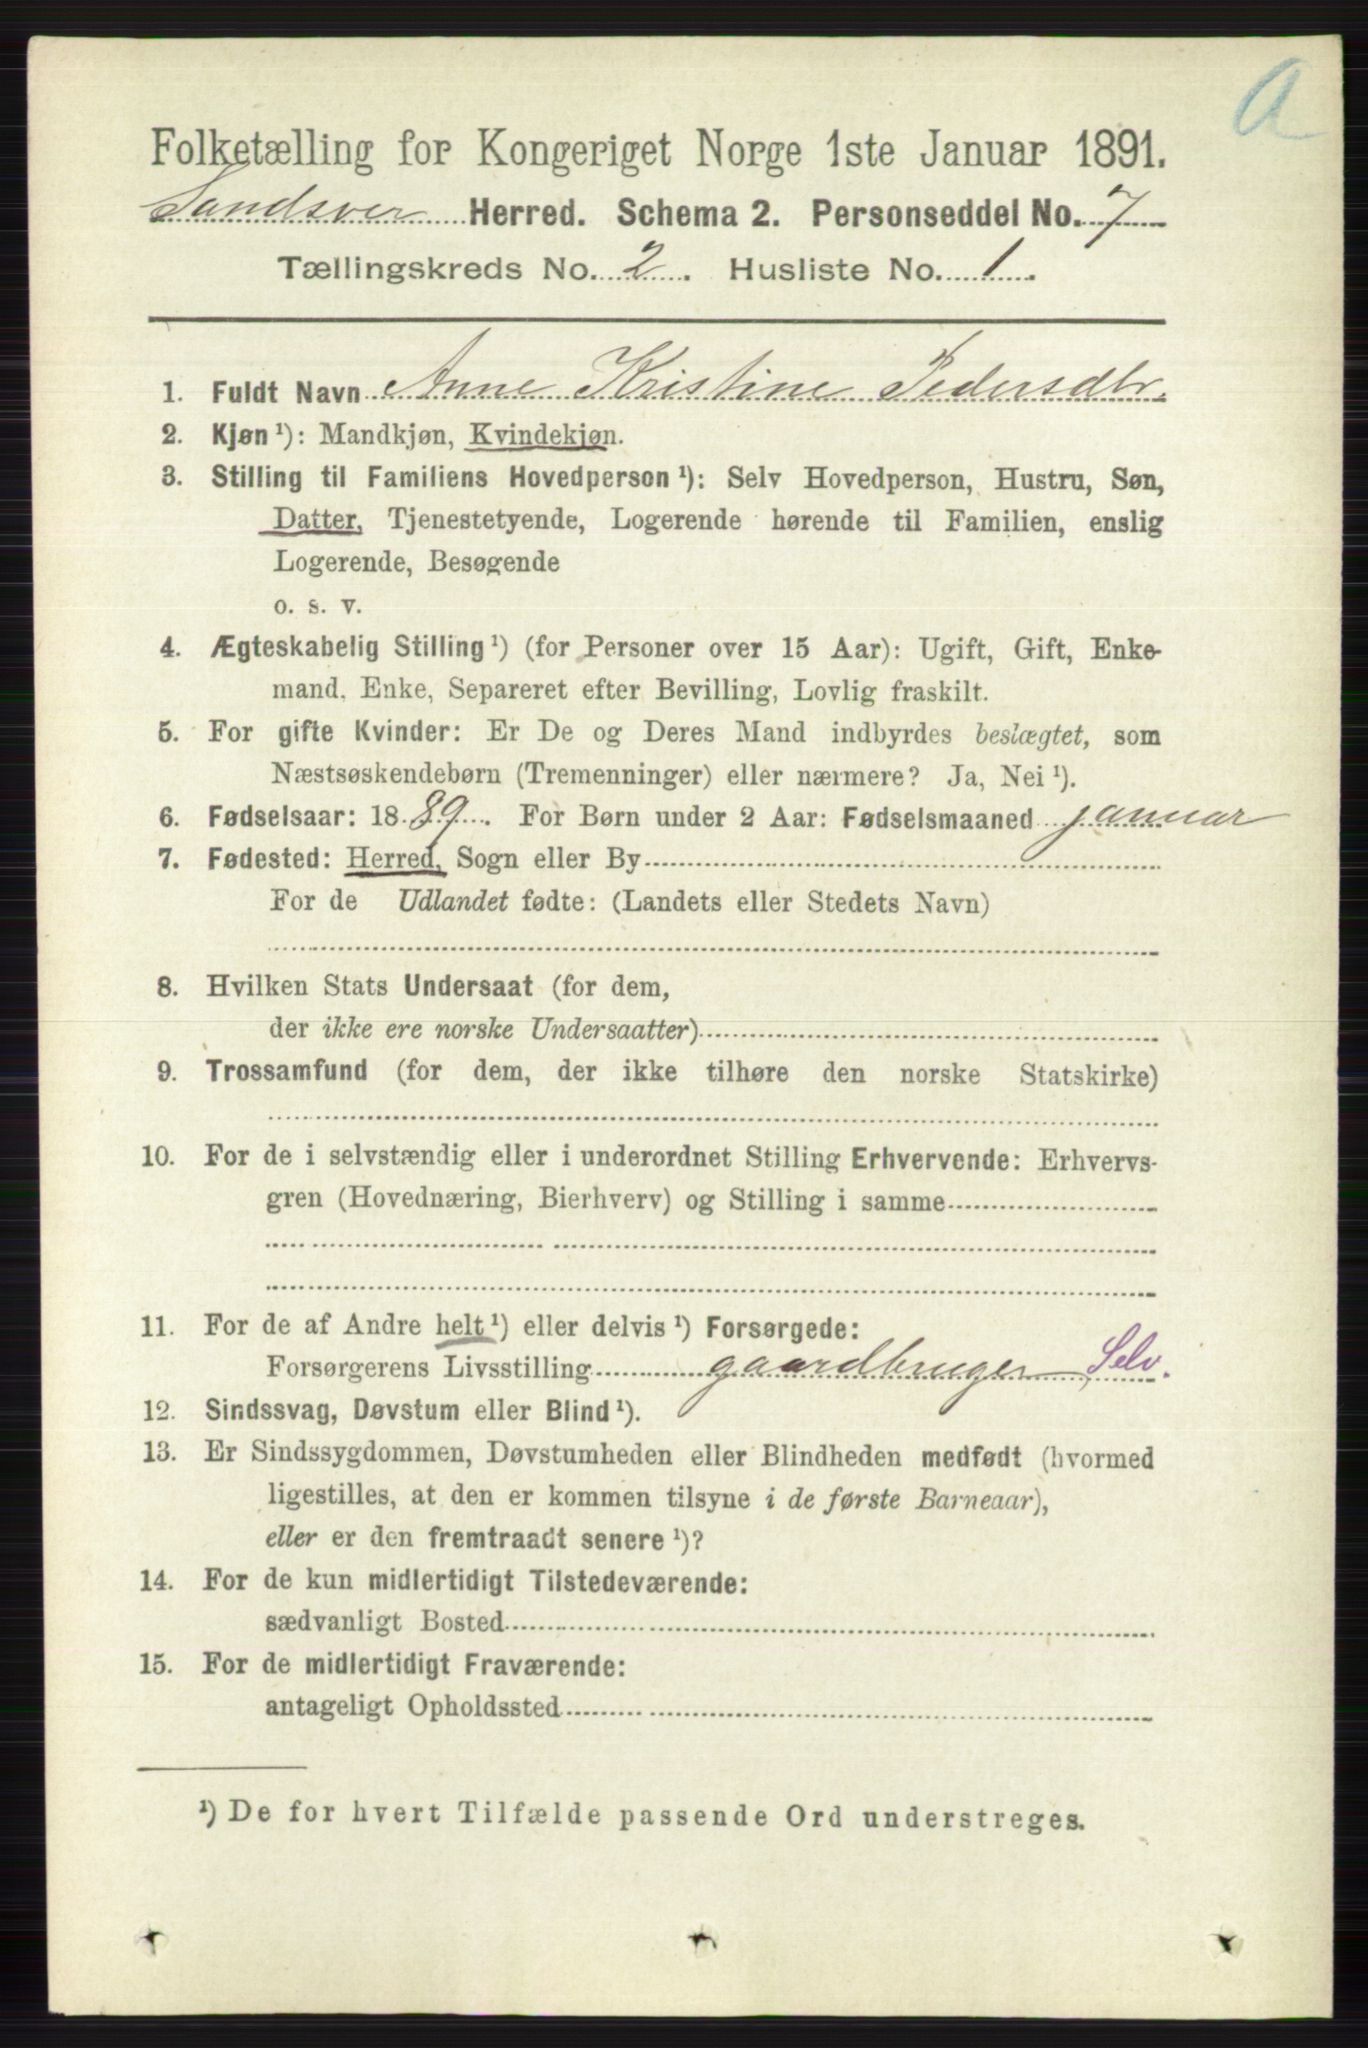 a
Folketælling for Kongeriget Norge 1ste Januar 1891.
Sandsver Herred. Schema 2. Personseddel No. 7
Tællingskreds No. 2. Husliste No. 1.
1. Fuldt Navn Anne Kristine Pedersdtr.
2. Kjøn ¹): Mandkjøn, Kvindekjøn.
3. Stilling til Familiens Hovedperson ¹): Selv Hovedperson, Hustru, Søn,
Datter, Tjenestetyende, Logerende hørende til Familien, enslig
Logerende, Besøgende
o. s. v.
4. Ægteskabelig Stilling ¹) (for Personer over 15 Aar): Ugift, Gift, Enke-
mand, Enke, Separeret efter Bevilling, Lovlig fraskilt.
5. For gifte Kvinder: Er De og Deres Mand indbyrdes beslægtet, som
Næstsøskendebørn (Tremenninger) eller nærmere? Ja, Nei ¹).
6. Fødselsaar: 1889. For Børn under 2 Aar: Fødselsmaaned januar
7. Fødested: Herred, Sogn eller By
For de Udlandet fødte: (Landets eller Stedets Navn)
8. Hvilken Stats Undersaat (for dem,
der ikke ere norske Undersaatter)
9. Trossamfund (for dem, der ikke tilhøre den norske Statskirke)
10. For de i selvstændig eller i underordnet Stilling Erhvervende: Erhvervs-
gren (Hovednæring, Bierhverv) og Stilling i samme
11. For de af Andre helt ¹) eller delvis ¹) Forsørgede:
Forsørgerens Livsstilling gaardbruger, Selv.
12. Sindssvag, Døvstum eller Blind ¹).
13. Er Sindssygdommen, Døvstumheden eller Blindheden medfødt (hvormed
ligestilles, at den er kommen tilsyne i de første Barneaar),
eller er den fremtraadt senere ¹)?
14. For de kun midlertidigt Tilstedeværende:
sædvanligt Bosted
15. For de midlertidigt Fraværende:
antageligt Opholdssted
¹) De for hvert Tilfælde passende Ord understreges.